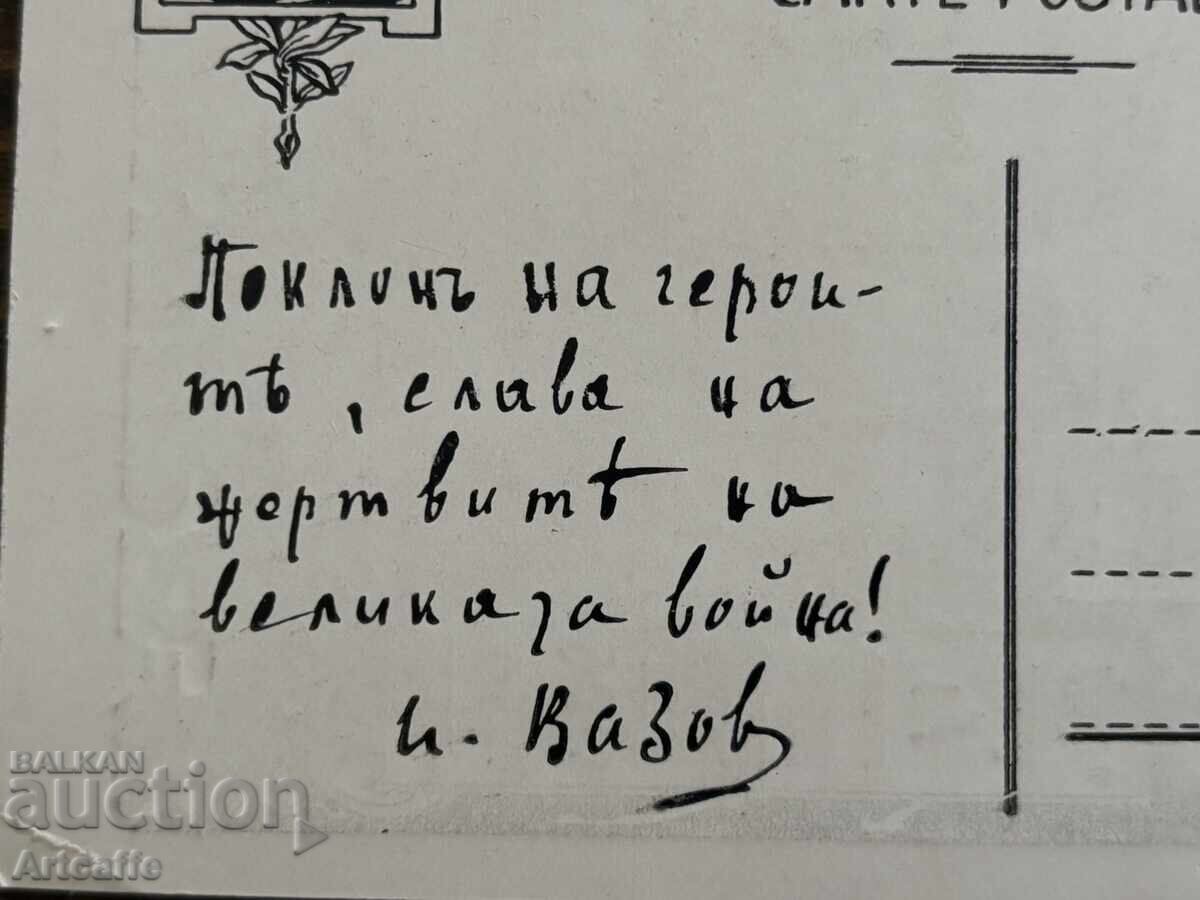 CARTE POSTAL
Поклонъ на герои-
тѣ, слава на
жертвитѣ на
великата война!
И. Вазов
BALKAN
auction
Artcaffe